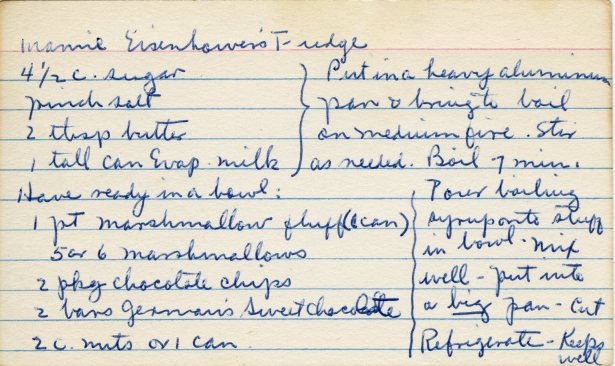 Mamie Eisenhower's Fudge
4 1/2 c. sugar
pinch salt
2 tbsp butter
1 tall can Evap. milk
Put in a heavy aluminum
pan & bring to boil
on medium fire. Stir
as needed. Boil 7 min.
Have ready in a bowl:
1 pt marshmallow fluff (1 can)
5 or 6 marshmallows
2 pkg chocolate chips
2 bars German's Sweet Chocolate
2 c. nuts or 1 can
Pour boiling
syrup onto stuff
in bowl - mix
well - put into
a big pan - cut
Refrigerate - Keeps
well